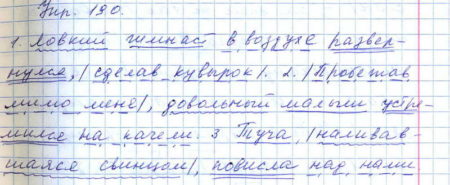 Упр. 190.
1. Ловкий гимнаст в воздухе развер-
нулся, /сделав кувырок/. 2. /Пробежав
мимо меня/, довольный малыш устре-
мился на качели. 3 Туча, /наливав-
шаяся свинцом/, повисла над нами